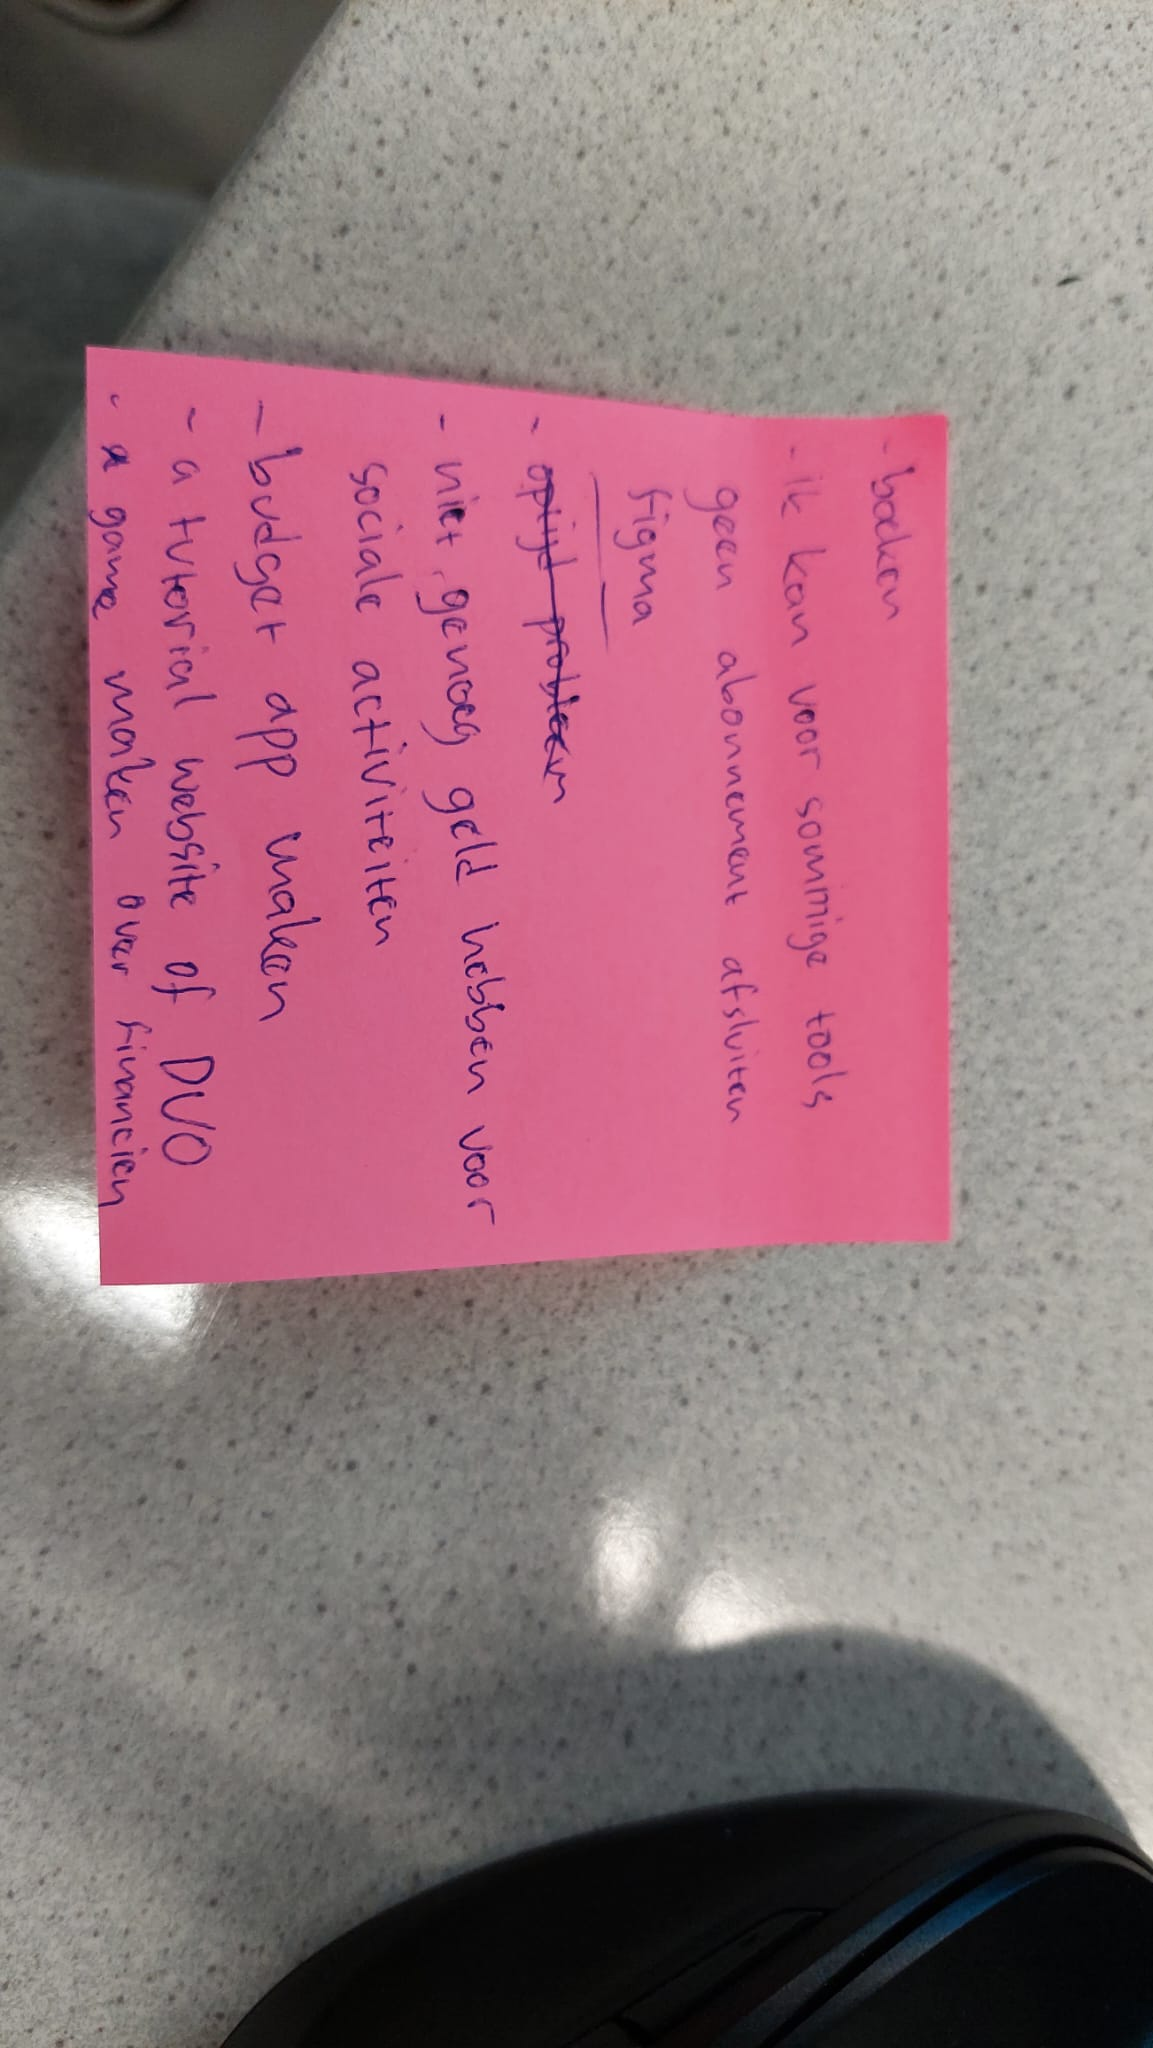 - boeken
- ik kan voor sommige tools
geen abonnement afsluiten
figma
- optijd probleem
- niet genoeg geld hebben voor
sociale activiteiten
- budget app maken
- a tutorial website of DUO
- a game maken over financien